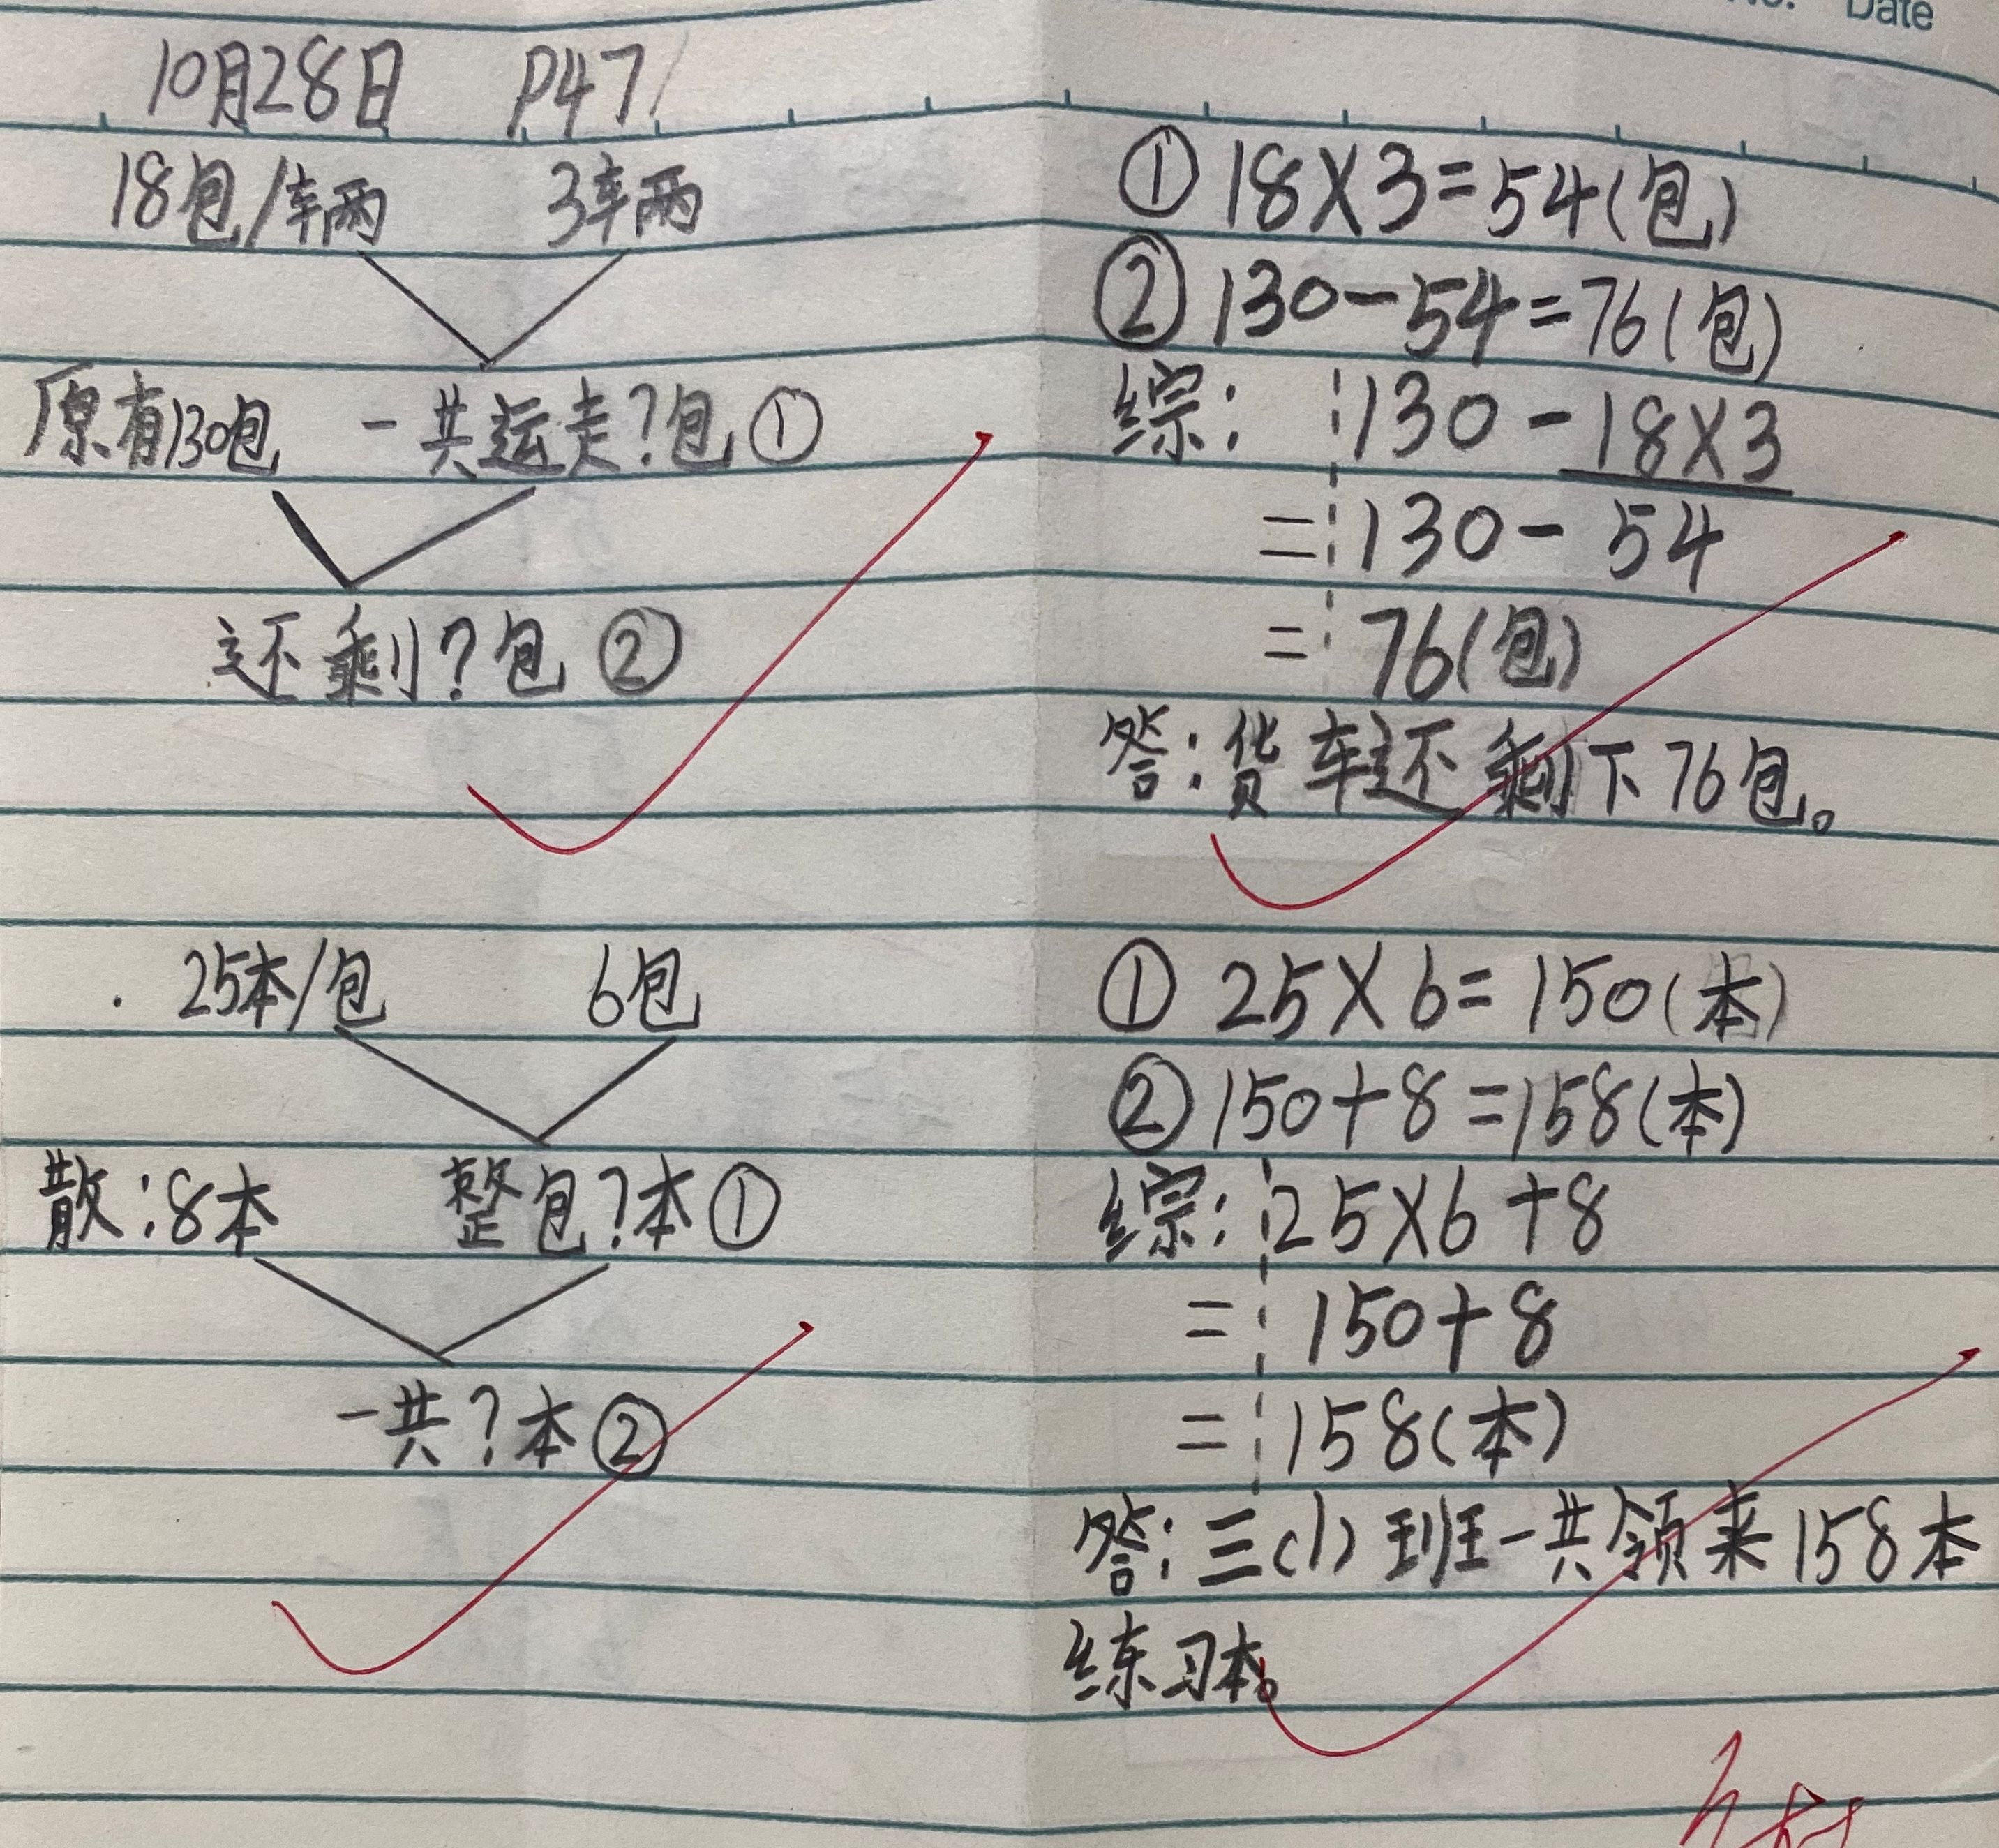 No. Date
10月28日 P47
18包/车辆 3车辆
原有130包 一共运走?包①
还剩?包②
①18×3=54(包)
②130-54=76(包)
综: 130-18×3
=130-54
=76(包)
答:货车还剩下76包。
25本/包 6包
散:8本 整包?本①
一共?本②
①25×6=150(本)
②150+8=158(本)
综:25×6+8
=150+8
=158(本)
答:三(1)班一共领来158本
练习本。